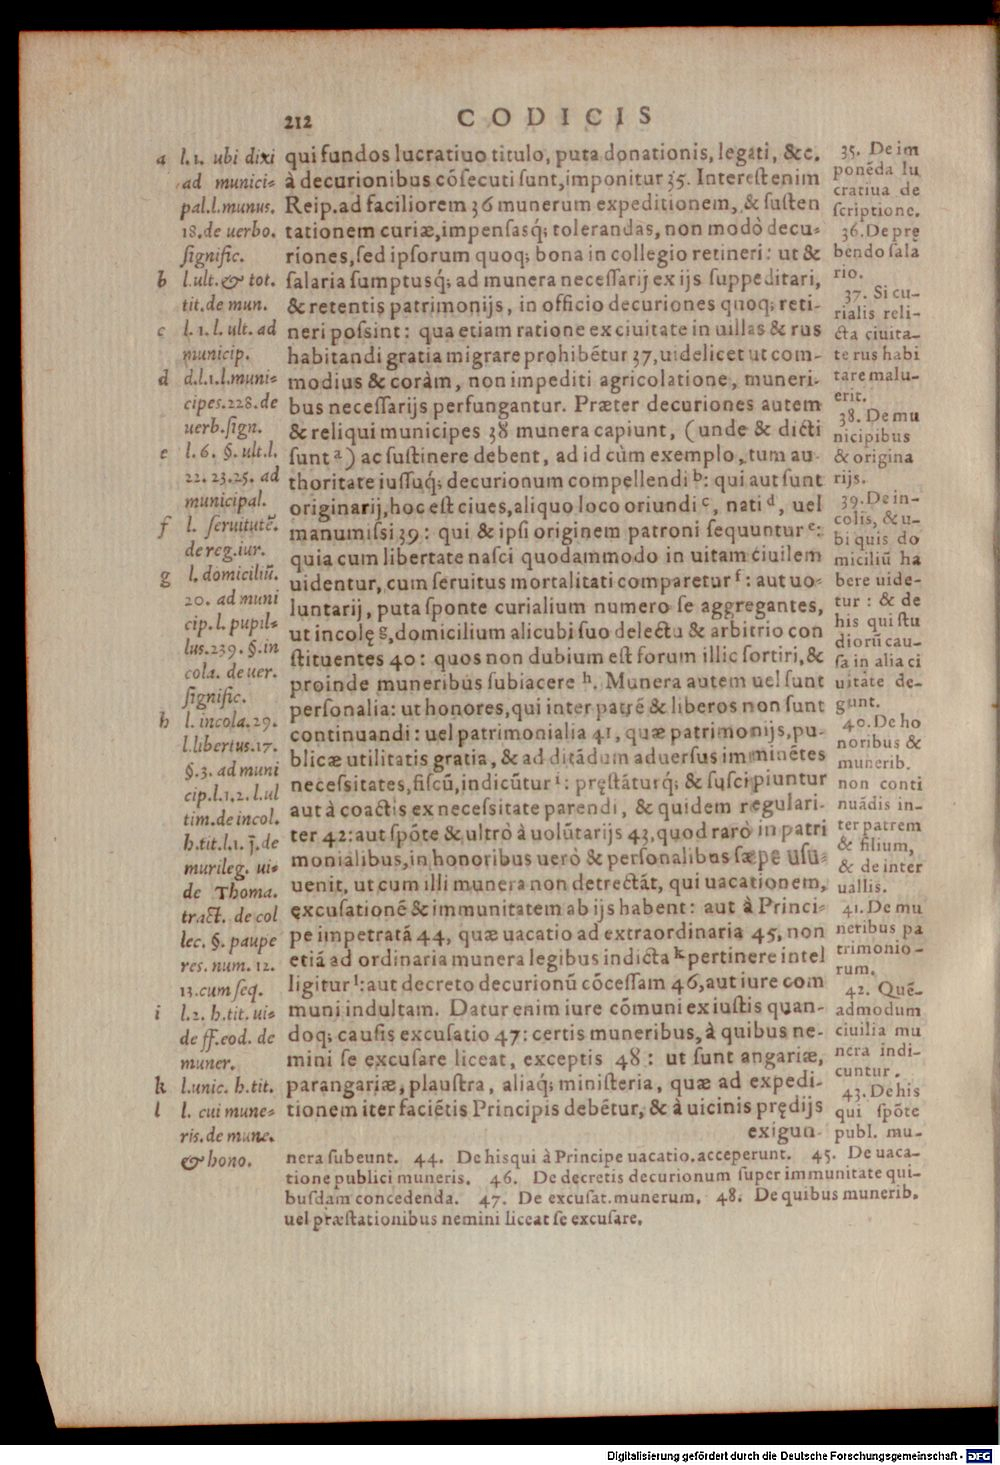 212
CODICIS
a l.1. ubi dixi
ad munici=
pal.l.munus.
18.de uerbo.
ſignific.
b l.ult.& tot.
tit.de mun.
c l.1.l.ult.ad
municip.
d d.l.1.l.muni=
cipes.228.de
uerb.ſign.
e l.6. §.ult.l.
22.23.25. ad
municipal.
f l. ſeruitutē.
de reg.iur.
g l. domiciliū.
20. ad muni
cip.l.pupil=
lus.239.§.in
cola. de uer.
ſignific.
h l. incola.29.
l.libertus.17.
§.3. ad muni
cip.l.1.2.l.ul
tim.de incol.
h.tit.l.1. j.de
murileg. ui=
de Thoma.
tract. de col
lec. §. paupe
res. num. 12.
13.cum ſeq.
i l.2. h.tit. ui=
de ff.eod. de
muner.
k l.unic. h.tit.
l l. cui mune=
ris.de mune.
& hono.
qui fundos lucratiuo titulo, puta donationis, legati, &c.
à decurionibus cōſecuti ſunt,imponitur 35. Intereſt enim
Reip.ad faciliorem 36 munerum expeditionem, & ſuſten
tationem curiæ,impenſasq́; tolerandas, non modò decu=
riones,ſed ipſorum quoq; bona in collegio retineri: ut &
ſalaria ſumptusq́; ad munera neceſſarij ex ijs ſuppeditari,
& retentis patrimonijs, in officio decuriones quoq; reti-
neri poſsint: qua etiam ratione ex ciuitate in uillas & rus
habitandi gratia migrare prohibētur 37,uidelicet ut com-
modius & coràm, non impediti agricolatione, muneri-
bus neceſſarijs perfungantur. Præter decuriones autem
& reliqui municipes 38 munera capiunt, (unde & dicti
ſunt a) ac ſuſtinere debent, ad id cùm exemplo, tum au-
thoritate iuſſuq́; decurionum compellendi b: qui aut ſunt
originarij,hoc eſt ciues,aliquo loco oriundi c, nati d, uel
manumiſsi 39: qui & ipſi originem patroni ſequuntur e:
quia cum libertate naſci quodammodo in uitam ciuilem
uidentur, cum ſeruitus mortalitati comparetur f: aut uo=
luntarij, puta ſponte curialium numero ſe aggregantes,
ut incolę g,domicilium alicubi ſuo delectu & arbitrio con
ſtituentes 40: quos non dubium eſt forum illic ſortiri,&
proinde muneribus ſubiacere h. Munera autem uel ſunt
perſonalia: ut honores,qui inter patrē & liberos non ſunt
continuandi: uel patrimonialia 41, quæ patrimonijs,pu-
blicæ utilitatis gratia, & ad ditādum aduerſus imminētes
neceſsitates, fiſcū,indicūtur i: pręſtāturq́; & ſuſcipiuntur
aut à coactis ex neceſsitate parendi, & quidem regulari-
ter 42: aut ſpōte & ultrò à uolūtarijs 43,quod rarò in patri
monialibus,in honoribus uerò & perſonalibus ſæpe uſu=
uenit, ut cum illi munera non detrectāt, qui uacationem,
excuſationē & immunitatem ab ijs habent: aut à Princi=
pe impetratā 44, quæ uacatio ad extraordinaria 45, non
etiā ad ordinaria munera legibus indicta k pertinere intel
ligitur l: aut decreto decurionū cōceſſam 46,aut iure com
muni indultam. Datur enim iure cōmuni ex iuſtis quan-
doq; cauſis excuſatio 47: certis muneribus, à quibus ne-
mini ſe excuſare liceat, exceptis 48: ut ſunt angariæ,
parangariæ, plauſtra, aliaq́; miniſteria, quæ ad expedi-
tionem iter faciētis Principis debētur, & à uicinis prędijs
exigun-
35. De im
ponēda lu
cratiua de
ſcriptione.
36.De prę
bendo ſala
rio.
37. Si cu-
rialis reli-
cta ciuita-
te rus habi
tare malu-
erit.
38. De mu
nicipibus
& origina
rijs.
39.De in-
colis, & u-
bi quis do
miciliū ha
bere uide-
tur: & de
his qui ſtu
diorū cau-
ſa in alia ci
uitate de-
gunt.
40.De ho
noribus &
munerib.
non conti
nuādis in-
ter patrem
& filium,
& de inter
uallis.
41.De mu
neribus pa
trimonio-
rum.
42. Quē-
admodum
ciuilia mu
nera indi-
cuntur.
43.De his
qui ſpōte
publ. mu-
nera ſubeunt. 44. De his qui à Principe uacatio.acceperunt. 45. De uaca-
tione publici muneris. 46. De decretis decurionum ſuper immunitate qui-
buſdam concedenda. 47. De excuſat.munerum. 48. De quibus munerib.
uel præſtationibus nemini liceat ſe excuſare.
Digitalisierung gefördert durch die Deutsche Forschungsgemeinschaft - DFG